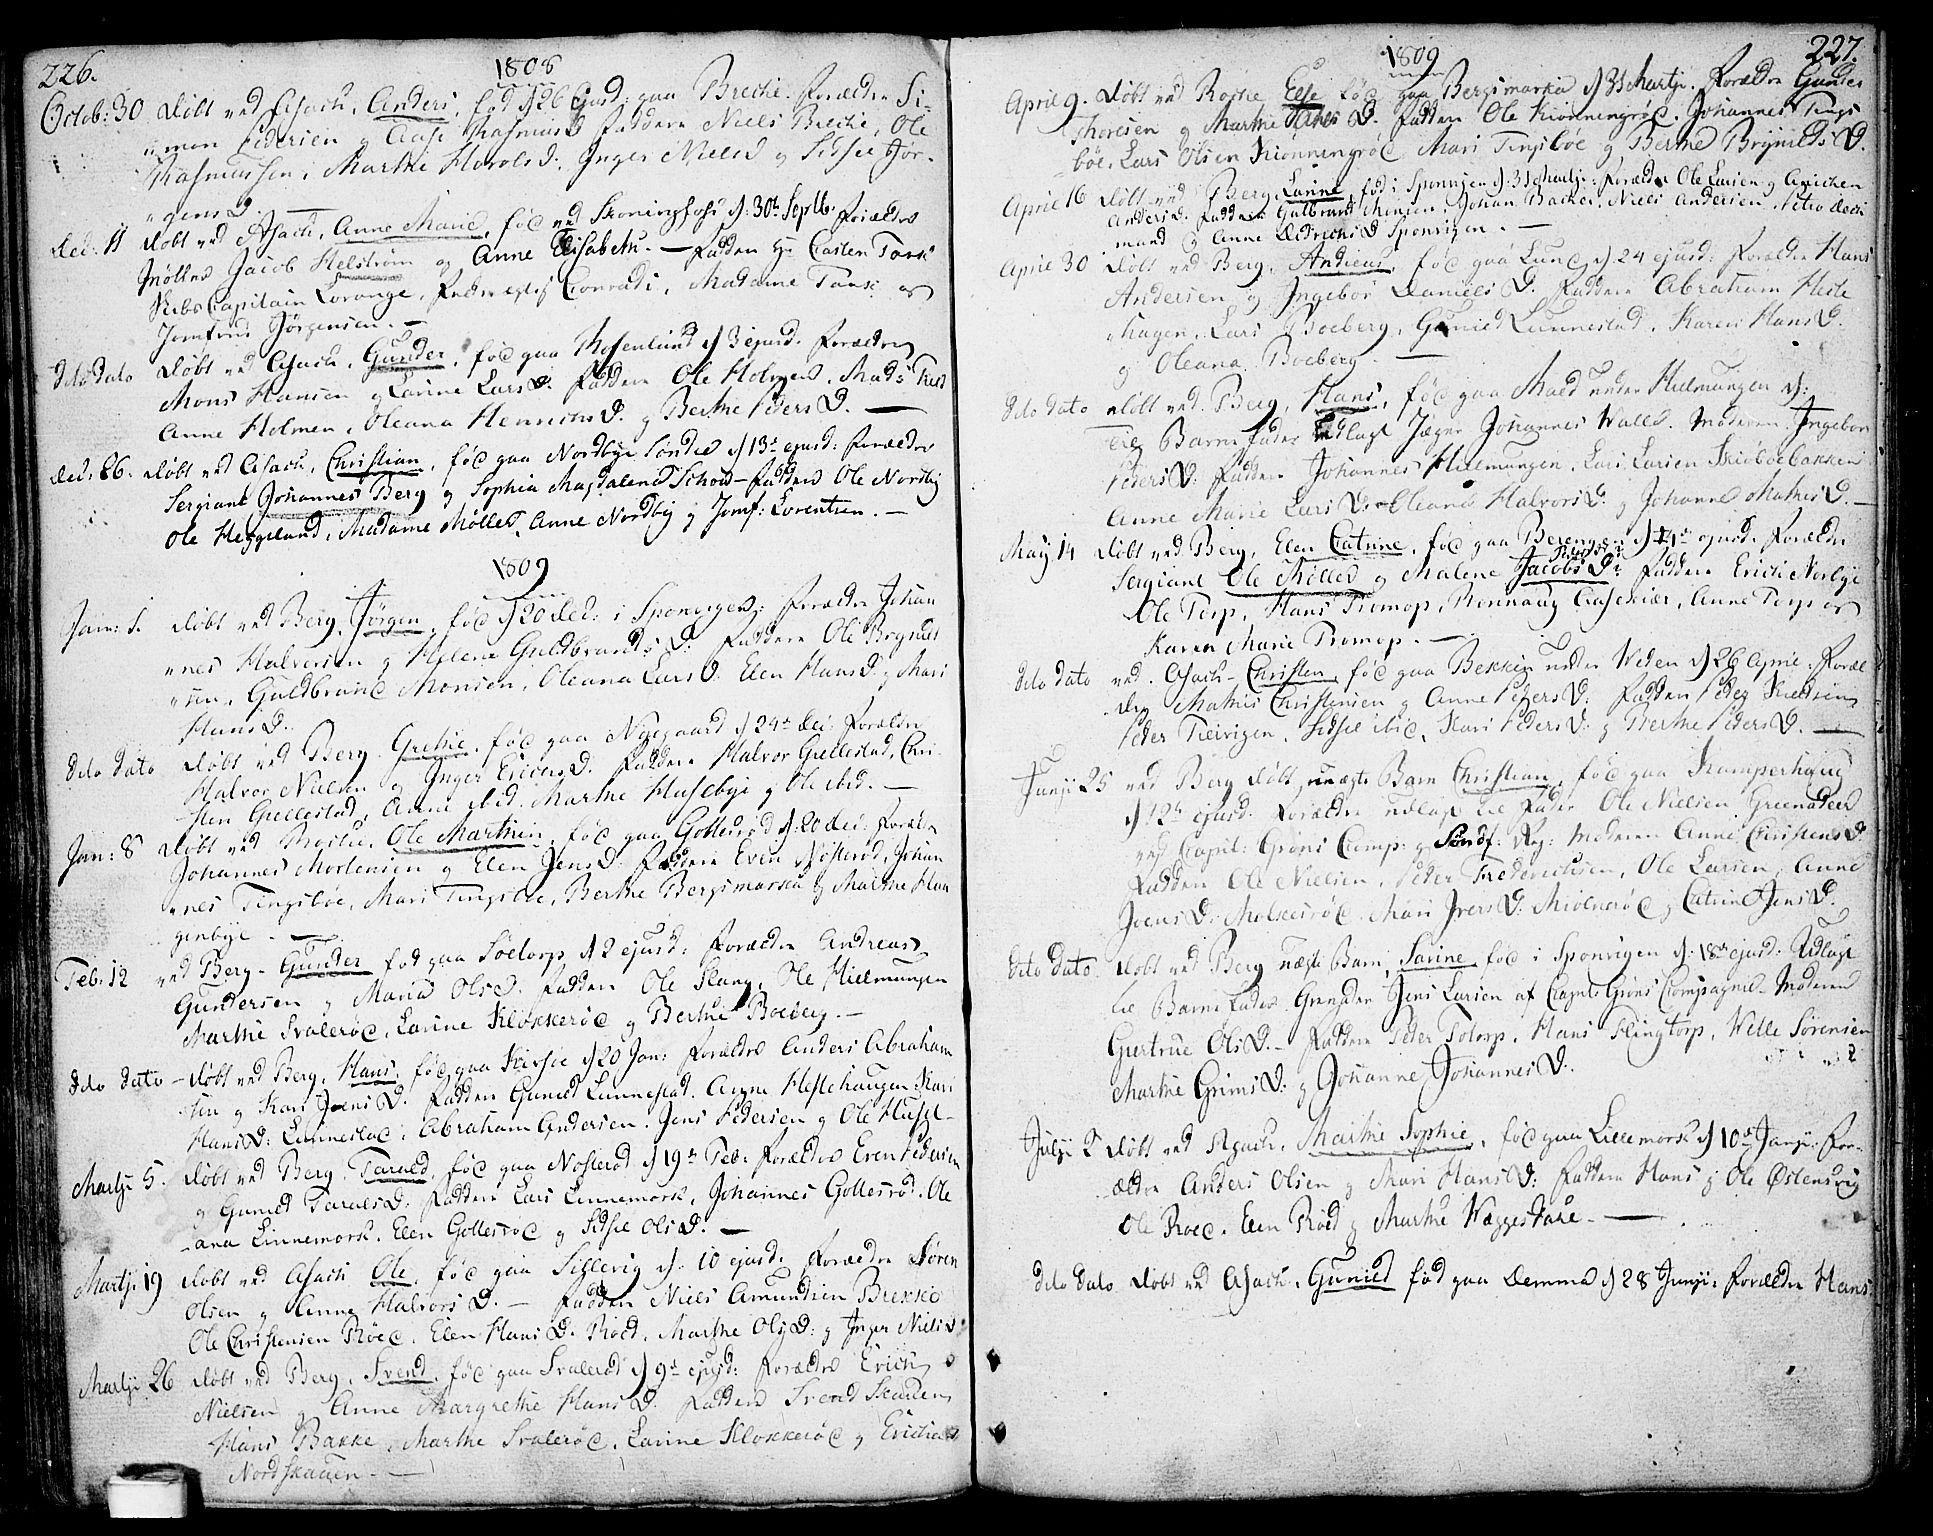 226.
1808
Octob: 30 Døbt ved Asach, Anders, fød d 26 ejusd: paa Breche. Forældre Si-
"mon Pedersen og Aase Rasmus D Faddere Niels Breche, Ole
Rasmussen, Marthe Harols D: Inger Niels D og Sidsel Jør-
"gens D. —
Dec. 11 Døbt ved Asach, Anne Marie, fød ved Skoninghofs d: 30te Septb. Forældre
Møller Jacob Helstrøm og Anne Elisabeth. — Faddere Hr Carsten Tank
Skibs Capitain Lorange, Conradi, Madame Tank og
Jomfrue Jørgensen. —
dito dato Døbt ved Asach, Gunder, fød paa Rosenlund d 3 ejusd. Forældre
Mons Hansen og Larine Lars D. Faddere Ole Holmen, Mads
Anne Holmen, Oleana Hennings D. og Berthe Peders D. —
Dec: 26. Døbt ved Asach, Christian, fød paa Nordbye Søndre d 13de ejusd: Forældre
Sergiant Johannes Berg og Sophia Magdalena Schow — Faddere Ole Nordby
Ole Heggelund, Madame Møller, Anne Nordby og Jomf: Lorentzen. —
1809
Jan: 1. Døbt ved Berg, Jørgen, fød d 20 Dec: i Sponvigen: Forældre Johan
"nes Halvorsen og Helene Guldbrands D: Faddere Ole Brynild
"sen, Guldbrand Monsen, Oleana Lars D. Elen Hans D. og Mari
Hans D.
dito dato Døbt ved Berg. Grethe, fød paa Nygaard d 24de Dec: Forældre
Halvor Nielsen og Inger Erichs D. Faddere Halvor Grellestad, Chri-
sten Grellestad, Anne ibid. Marthe Husebye og Ole ibid. —
Jan: 8 Døbt ved Rochie, Ole Marthin, fød paa Gollesrød d: 20 Dec: Forældre
Johannes Mortensen og Elen Jens D. Faddere Even Nøsterød, Johan
"nes Tingsbøe, Mari Tingsbøe, Berthe Bergsmarka og Marthe Hau
"genbye. —
Feb: 12 ved Berg — Gunder fød paa Søetorp d 2 ejusd: Forældre Andreas
Gundersen og Maria Ols D. Faddere Ole Skang, Ole Hielmungen
Marthe Svalerød, Larine Klokkerød og Berthe Boeberg. —
dito dato — Døbt ved Berg, Hans, fød paa d 20 Jan: Forældre Anders Abraham
sen og Kari Jens D. Faddere Gunild Lunnestad. Anne Hestehaugen: Kari
Hans D: Lunnestad, Abraham Andersen. Jens Pedersen og Ole
Martji 5. Døbt ved Berg, Tarald, fød paa Nosterød d 19de Feb: Forældre Even Pedersen
og Gunild Tarals D: Faddere Lars Linnemork, Johannes Gollesrød. Ole
-ana Linnemork. Elen Gollesrød og Sidsel Ols D. —
Martji 19 Døbt ved Asach Ole, fød paa Sillevig d. 10 ejusd. Forældre Søren
Olsen og Anne Halvors D. — Faddere Niels Amundsen Brekke
Ole Christensen Røed, Elen Hans D. Røed, Marthe Ols D: og Inger Niels D
Martji 26 Døbt ved Berg, Svend, fød paa Svalerød d 9de ejusd: Forældre Erich
Nielsen og Anne Margrethe Hans D. Faddere Svend Skauen
Hans Bakke, Marthe Svalerød, Larine Klokkerød og Erich
Nordskauen. —
227.
1809
April 9. Døbt ved Rochie Else fød paa Bergsmarka d 31 Martji. Forældre Gunder
Thoresen og Marthe Hans D. Faddere Ole Kiønnengrød, Johannes Tings
bøe, Lars Olsen Kionnengrød Mari Tingsbøe og Berthe Brynilds D.
April 16 Døbt ved Berg, Larine, fød i Sponvigen d. 31 Martji: Forældre Ole Larsen og Anichen
Anders D. Faddere Gulbrand Monsen, Johan Backe, Niels Andersen,
mand og Anne Didrichs D Sponvigen. —
April 30 Døbt ved Berg, Andreas, fød paa Lund d. 24 ejusd: Forældre Hans
Andersen og Ingebor Daniels D. Faddere Abraham Heste
"hagen, Lars Boeberg, Gunild Lunnestad, Karen Hans D.
og Oleana Boeberg. —
dito dato Døbt ved Berg, Hans, fød paa Moed under Hielmungen d:
Barnefader udlagt Jæger Johannes Walle. Moderen Ingebor
Peders D. Faddere Johannes Hielmungen, Lars Larsen Skieboebakken
Anne Marie Lars D. Oleana Halvors D. og Johanne Mathis D. —
May 14 Døbt ved Berg, Elen Catrine, fød paa Berengen d 1ste ejusd. Forældre
Sergiant Ole Møller og Malene Jacobs D: Faddere Erich Norbye
Ole Torp, Hans Tromop, Ronnaug Aasekiær, Anne Torp og
Karen Marie Tromop. —
dito dato ved Asach — Christen, fød paa Bekken under Weden d 26 April. Foræl
dre Mathis Christensen og Anne Peders D: Faddere Peder
Peder Tieivigen, Sidsel ibid, Kari Peders D: og Berthe Peders D. —
Junji 25 ved Berg Døbt, unægte Barn Christian, fød paa Kamperhaug
d 12te ejusd. Forældre udlagt til Fader Ole Nielsen Greenadeer
ved Capit: Grøns Comp: og Søndf: Reg: Moderen Anne Christens D:
Faddere Ole Nielsen, Peder Frederichsen, Ole Larsen, Anne
Joens D: Molkesrød. Mari Ivers D: Miølnerød og Catrine Jens D.
Dito Dato. Døbt ved Berg uægte Barn, Larine, fød i Sponvigen d. 18de ejusd: Udlagt
til Barnefader Grenader Jens Larsen af Capt: Grøns Compagnie. Moderen
Gurtrue Ols D. — Faddere Peder Totorp, Hans Flingtorp, Helle Sørensen
Marthe Grims D: og Johanne Johannes D.
Julji 2 Døbt ved Asach, Marthe Sophie, fød paa Lillemork d 10de Junji. For-
ældre Anders Olsen og Mari Hans D: Faddere Hans og Ole Østensvig
Ole Roed. Elen Røed og Marthe Wæggeskare. —
dito dato Døbt ved Asach, Gunild fød paa Demma d 28 Junji: Forældre Hans